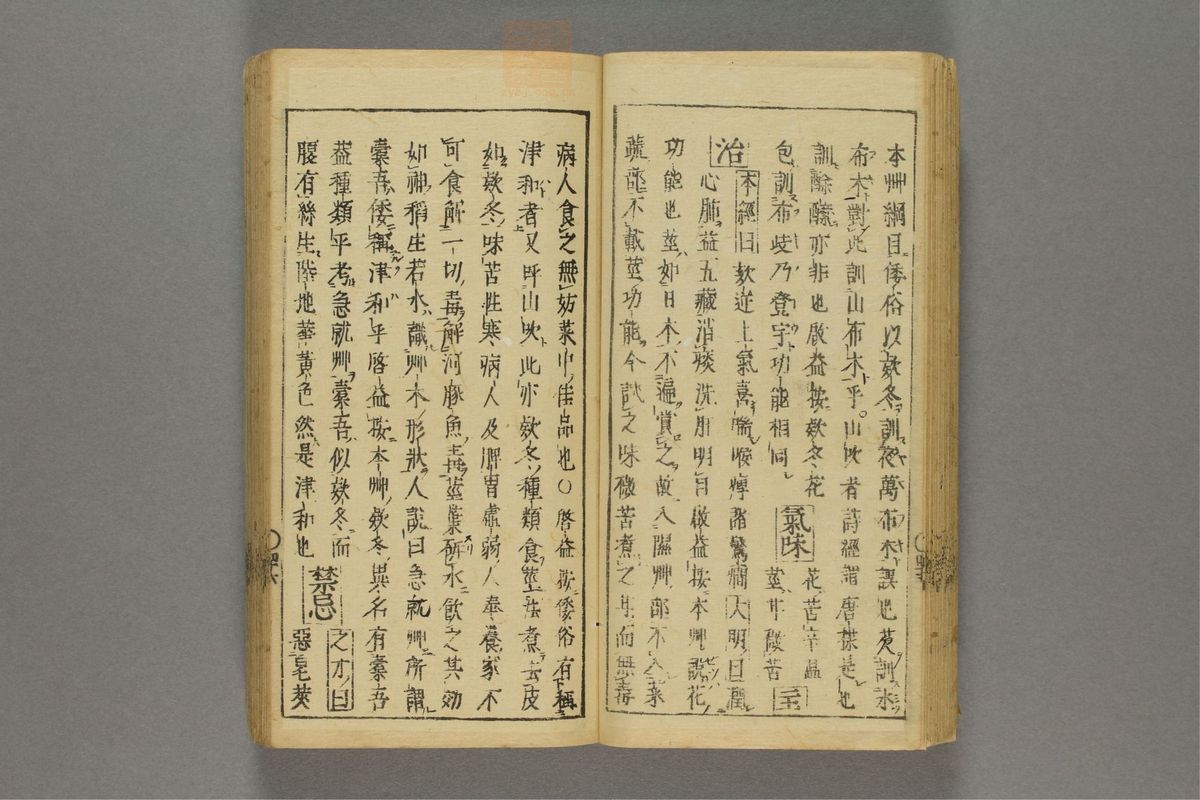 本艸綱目倭俗以欵冬訓夜萬布木誤也莧訓水
布木對此訓山布木乎山吹者詩經謂唐棣是也
訓酴醿亦非也啟益按欵冬花
包訓布歧乃登宇功能相同
氣味
花苦辛温
莖甘微苦
主
治
本經曰欬逆上氣喜喘喉痺諸驚癇大明曰潤
心肺益五藏消痰洗肝明目啟益按本艸説花
功能也莖如日本不遍賞之故入隰艸部不入菜
蔬部不載莖功能今試之味微苦煮之甘而無毒
病人食之無妨菜中佳品也〇啓益按倭俗有稱
津和者又呼山吹此亦欵冬種類食莖法煮去皮
如欵冬味苦性寒病人及脾胃虚弱人奉養家不
可食解一切毒解河豚魚毒莖葉研水飲之其効
如神稻生若水識艸木形狀人説曰急就艸所謂
橐吾倭稱津和乎啓益按本艸欵冬異名有橐吾
葢種類乎考急就艸橐吾似欵冬而
腹有絲生陸地華黄色然是津和也
禁忌
之才曰
惡皂莢